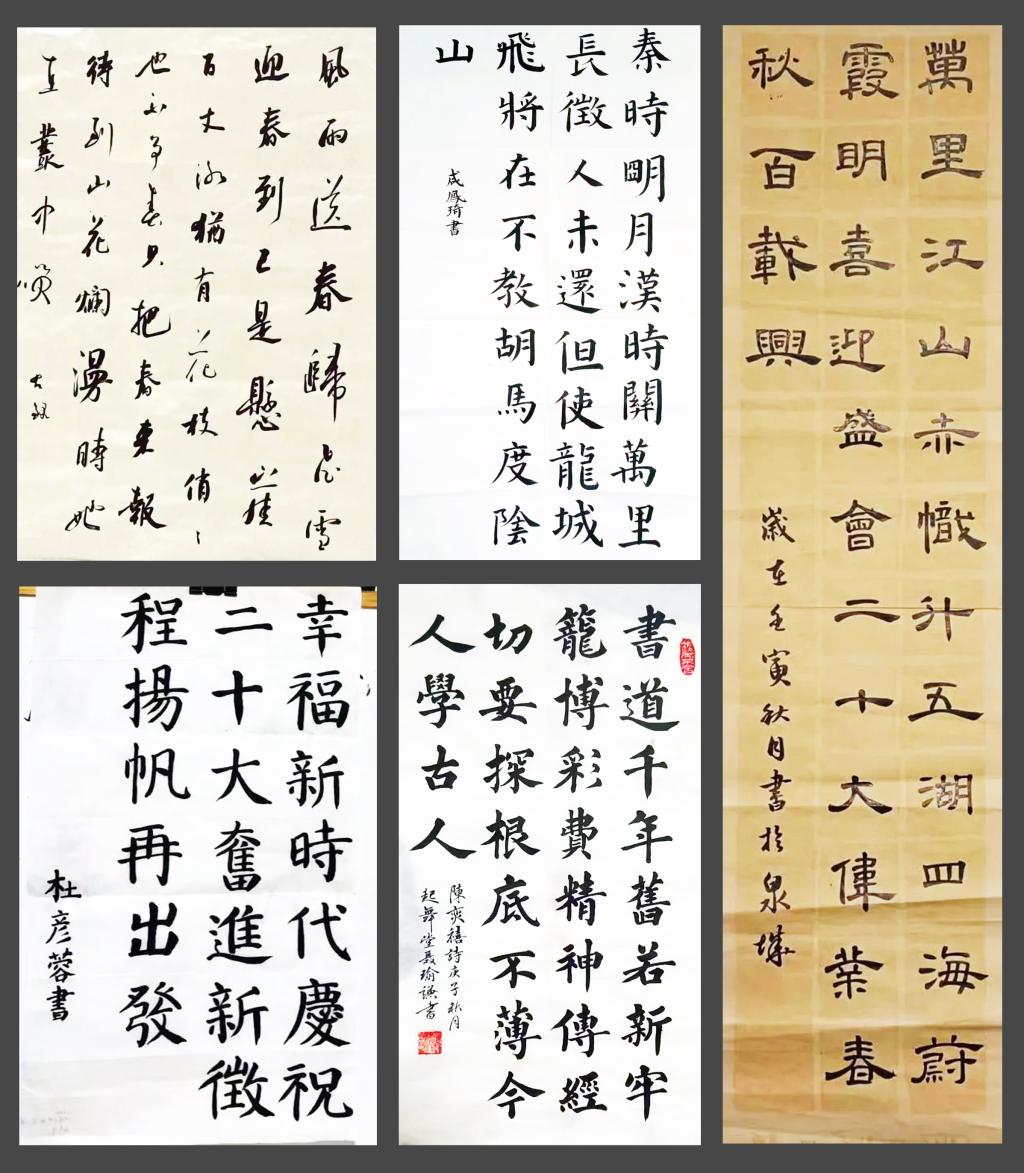 風雨送春歸飛雪
迎春到已是懸崖
百丈冰猶有花枝俏〻
也不争春只把春来報
待到山花爛漫時她
在叢中笑
秦時明月漢時關萬里
長徵人未還但使龍城
飛將在不教胡馬度陰
山
成鳳琦書
萬里江山赤幟升五湖四海蔚
霞明喜迎盛會二十大偉業春
秋百載興
歲在壬寅秋月書於泉城
幸福新時代慶祝
二十大奮進新徵
程揚帆再出發
杜彦蓉書
書道千年舊若新牢
籠博彩費精神傳經
切要探根底不薄今
人學古人
陳奕禧詩庚子秋月
起舞堂聂瑜書